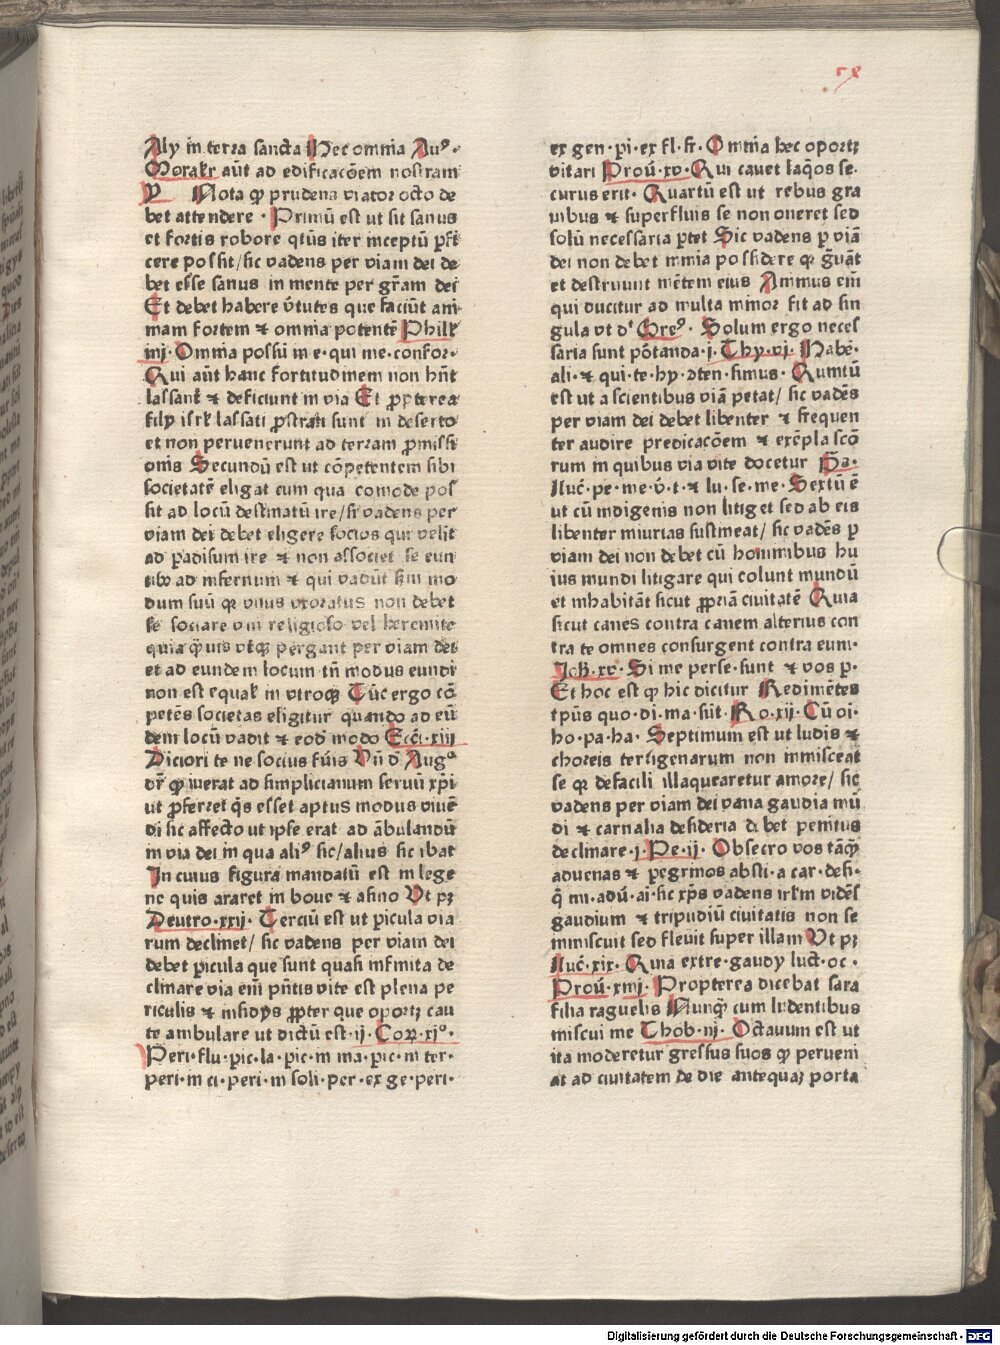 58
Aly in terra sancta Hec omnia Auꝰ·
Moralr̄ aūt ad edificacōem nostram
Nota ꝙ prudens viator octo de
bet attendere · Primū est ut sit sanus
et fortis robore qtūs iter inceptū ꝑfi
cere possit/sic vadens per viam dei de
bet esse sanus in mente per grām dei
Et debet habere v̄tutes que faciūt ani
mam fortem ⁊ omnia potentē Philip̄
iiij· Omnia possū in e·qui me·confor·
Qui aūt hanc fortitudinem non hn̄t
lassant̄ ⁊ deficiunt in via Et ꝓpterea
filij isrl̄ lassati ꝓstrati sunt in deserto
et non peruenerunt ad terram ꝓmissi
onis Secundū est ut cōpetentem sibi
societatē eligat cum qua comode pos
sit ad locū destinatū ire/si vadens per
viam dei debet eligere socios qui velit
ad paradisum ire ⁊ non associet se eun
tibꝰ ad infernum ⁊ qui vadūt scd̄m mo
dum suū qꝛ vnus vxoratus non debet
se sociare vni religioso vel heremite
quia qͣuis vtꝙ pergant per viam dei
et ad eundem locum tn̄ modus eundi
non est equal̄ in vtroqꝫ Tūc ergo cō
petēs societas eligitur quando ad eū
dem locū vadit ⁊ eod̄ modo Ecci̅·xiij
Diciori te ne socius fūis Vn̄ d̄ Augꝰ
dr̄ ꝙ iuerat ad simplicianum seruū xp̄i
ut ꝓferret q̄s esset aptus modus viuē
di sic affecto ut ipse erat ad ābulandū
in via dei in qua aliꝰ sic/alius sic ibat
In cuius figura mandatū est in lege
ne quis araret in boue ⁊ asino Vt pꝫ
Deutro·xxij· Terciū est ut ꝑicula via
rum declinet/ sic vadens per viam dei
debet ꝑicula que sunt quasi infinita de
clinare via em̄ pn̄tis vite est plena pe
riculis ⁊ insidijs ꝓpter que oportꝫ cau
te ambulare ut dictū est·ij·Coꝝ·xjº·
Peri·flu·ꝑic·la·ꝑic·in ma·ꝑic·in ter·
peri·in ci·peri·in soli·per·ex ge·peri·
ex gen·pi·ex fl·fr·Omnia hec oportꝫ
vitari Proū·xv·Qui cauet laq̄os se·
curus erit· Quartū est ut rebus gra
uibus ⁊ superfluis se non oneret sed
solū necessaria portet Sic vadens ꝑ viā
dei non debet nimia possidere qꝛ gͣuāt
et destruunt mētem eius Animus em̄
qui ducitur ad multa minor fit ad sin
gula vt dꝰ Greꝰ· Solum ergo neces
saria sunt portanda·j·Thy·vj·Habē·
ali·⁊ qui·te·hy·ꝯten·simus·Quintū
est ut a scientibus viā petat/ sic vadēs
per viam dei debet libenter ⁊ frequen
ter audire predicacōem ⁊ exēpla scō
rum in quibus via vite docetur
Luc̄·pe·me·v̄·t·⁊ lu·se·me·Sextū ē
ut cū indigenis non litiget sed ab eis
libenter iniurias sustineat/ sic vadēs ꝑ
viam dei non debet cū hominibus hu
ius mundi litigare qui colunt mundū
et inhabitāt sicut ꝓpriā ciuitatē Quia
sicut canes contra canem alterius con
tra te omnes consurgent contra eum·
Joh̄·xv·Si me perse·sunt ⁊ vos p·
Et hoc est ꝙ hic dicitur Redimētes
tpūs quo·di·ma·sūt·Ro·xij·Cū oi·
ho·pa·ha·Septimum est ut ludis ⁊
choreis terrigenarum non inmisceat
se qꝛ de facili illaquearetur amore/ sic
vadens per viam dei vana gaudia mū
di ⁊ carnalia desideria debet penitus
declinare·j·Pe·ij·Obsecro vos tāqͣ
aduenas ⁊ ꝑegrinos absti·a car·desi·
q̄ mi·adū·ai·sic xp̄s vadens irl̄m vidēs
gaudium ⁊ tripudiū ciuitatis non se
inmiscuit sed fleuit super illam Vt pꝫ
Luc̄·xix·Quia extre·gaudij luct·oc·
Proū·xiiij·Propterea dicebat sara
filia raguelis Nunqͣ cum ludentibus
miscui me Thob·iij·Octauum est ut
ita moderetur gressus suos ꝙ perueni
at ad ciuitatem de die antequaꝫ porta
Digitalisierung gefördert durch die Deutsche Forschungsgemeinschaft · DFG